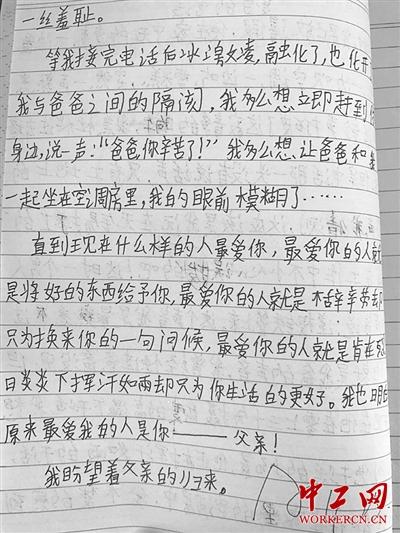 一丝羞耻。
等我接完电话后冰凌,融化了,也化开
我与爸爸之间的隔阂,我多么想立即赶到
身边,说一声:“爸爸,你辛苦了!”我多么想让爸爸和我
一起坐在空调房里,我的眼前模糊了……
直到现在什么样的人最爱你,最爱你的人就
是将好的东西给予你,最爱你的人就是辛辛劳劳却
只为换来你的一句问候,最爱你的人就是肯在
日炎炎下挥汗如雨却只为你生活的更好。我也明白
原来最爱我的人是你——父亲!
我盼望着父亲的归来。
中工网
WORKERCN.CN